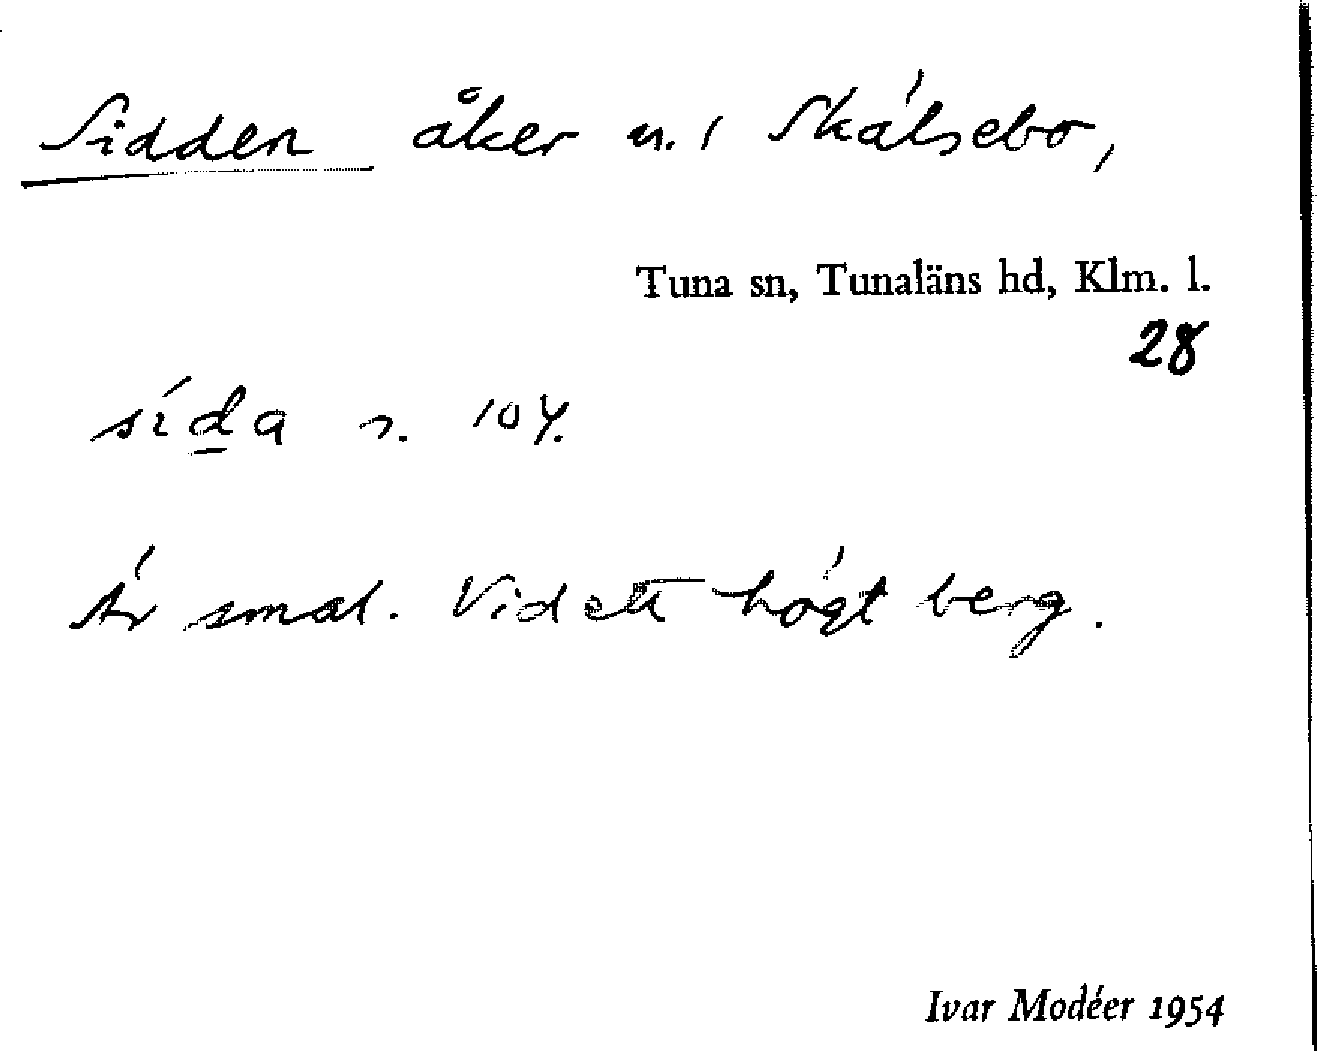 Sidden åker n. i Skälsebo,
Tuna sn, Tunaläns hd, Klm. l.
28
sida s. 104.
Är smal. Vid ett högt berg.
Ivar Modéer 1954